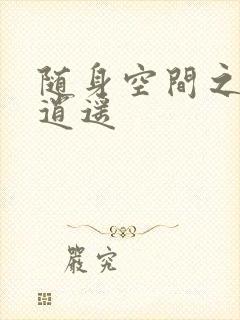 随身空間之
逍遥
嚴究